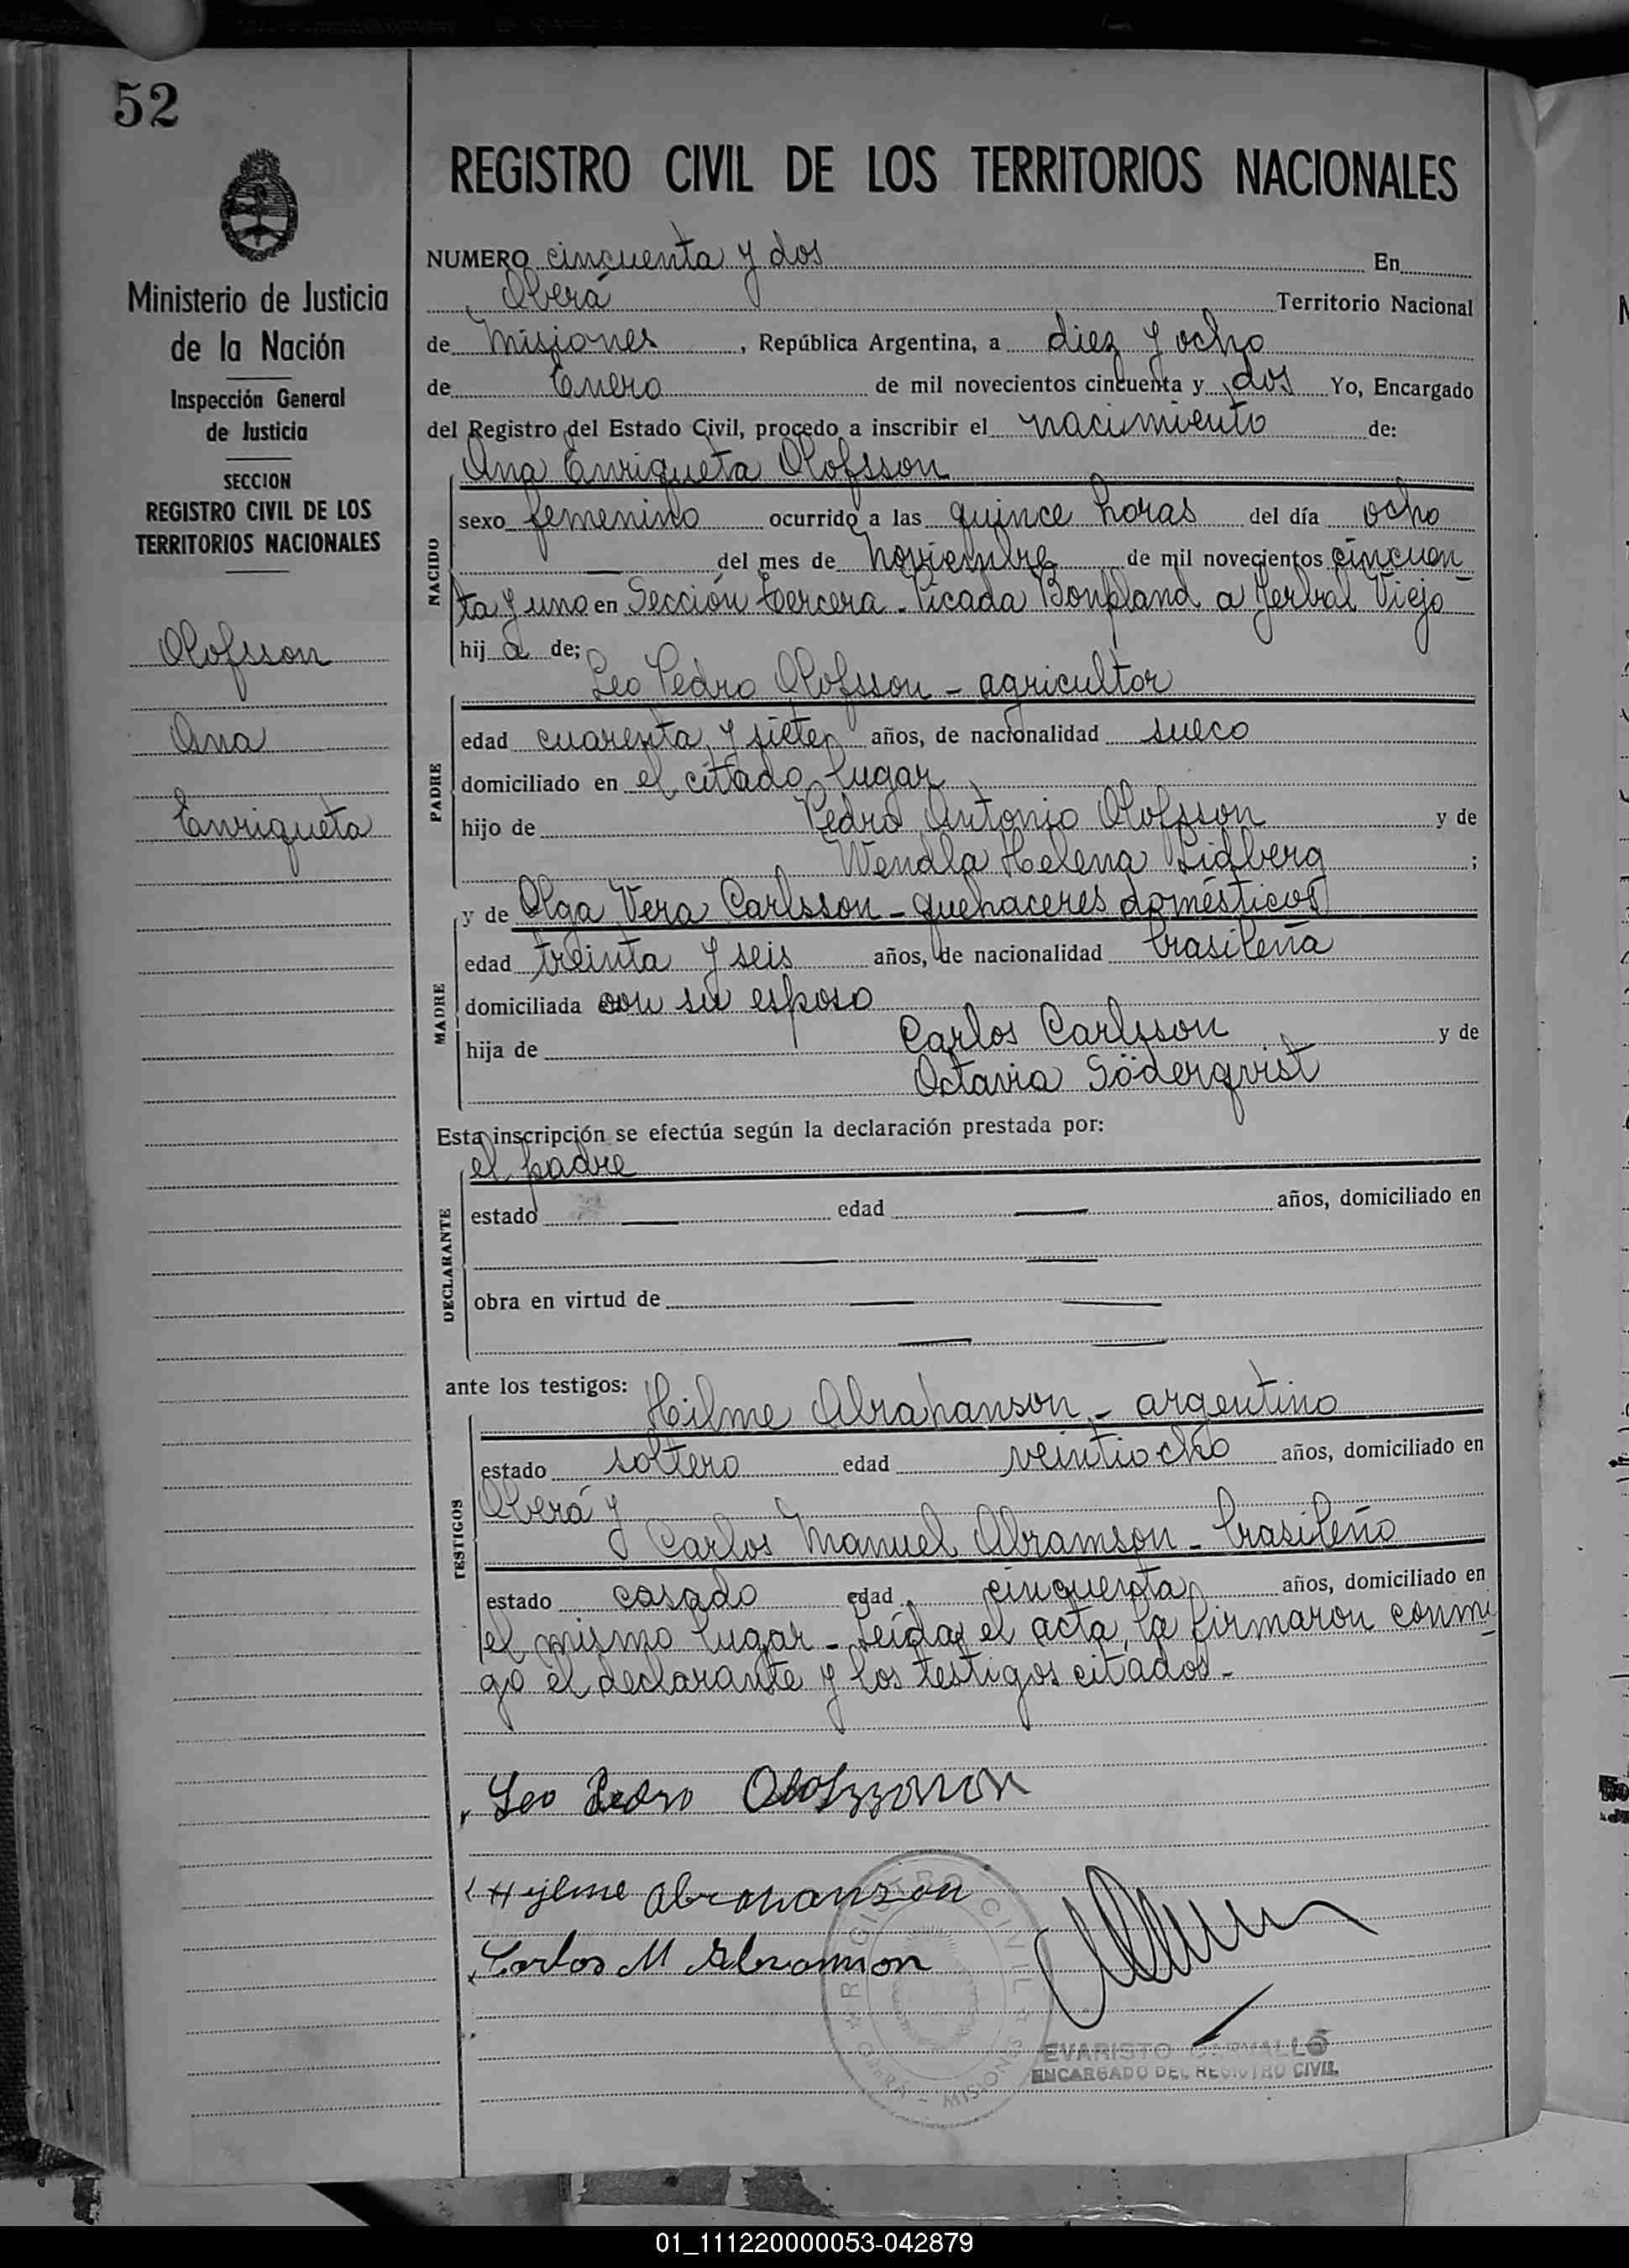 52
Ministerio de Justicia
de la Nación
Inspección General
de Justicia
SECCION
REGISTRO CIVIL DE LOS
TERRITORIOS NACIONALES
Olofsson
Ana
Enriqueta
REGISTRO CIVIL DE LOS TERRITORIOS NACIONALES
NUMERO cincuenta y dos En
Oberá Territorio Nacional
de Misiones, República Argentina, a diez y ocho
de Enero de mil novecientos cincuenta y dos Yo, Encargado
del Registro del Estado Civil, procedo a inscribir el nacimiento de:
Ana Enriqueta Olofsson
NACIDO
sexo femenino ocurrido a las quince horas del día ocho
— del mes de Noviembre de mil novecientos cincuen
ta y uno en Sección tercera - Picada Bonpland a Yerbal Viejo
hij a de:
Leo Pedro Olofsson - agricultor
PADRE
edad cuarenta y siete años, de nacionalidad sueco
domiciliado en el citado lugar
hijo de Pedro Antonio Olofsson y de
Wendla Helena Lidberg ;
y de Olga Vera Carlsson - quehaceres domésticos
MADRE
edad treinta y seis años, de nacionalidad brasileña
domiciliada con su esposo
hija de Carlos Carlsson y de
Octavia Söderqvist
Esta inscripción se efectúa según la declaración prestada por:
el padre
DECLARANTE
estado — edad — años, domiciliado en
— —
obra en virtud de — —
— —
ante los testigos: Hilme Abrahanson - argentino
TESTIGOS
estado soltero edad veintiocho años, domiciliado en
Oberá y
Carlos Manuel Abramson - brasileño
estado casado edad cinquenta años, domiciliado en
el mismo lugar - Leída el acta, la firmaron conmi
go el declarante y los testigos citados -
Leo Pedro Olofsson
Hjelme Abrahanson
Carlos M Abramson
REGISTRO CIVIL
OBERA - MISIONES
EVARISTO CARVALLO
ENCARGADO DEL REGISTRO CIVIL
01_111220000053-042879